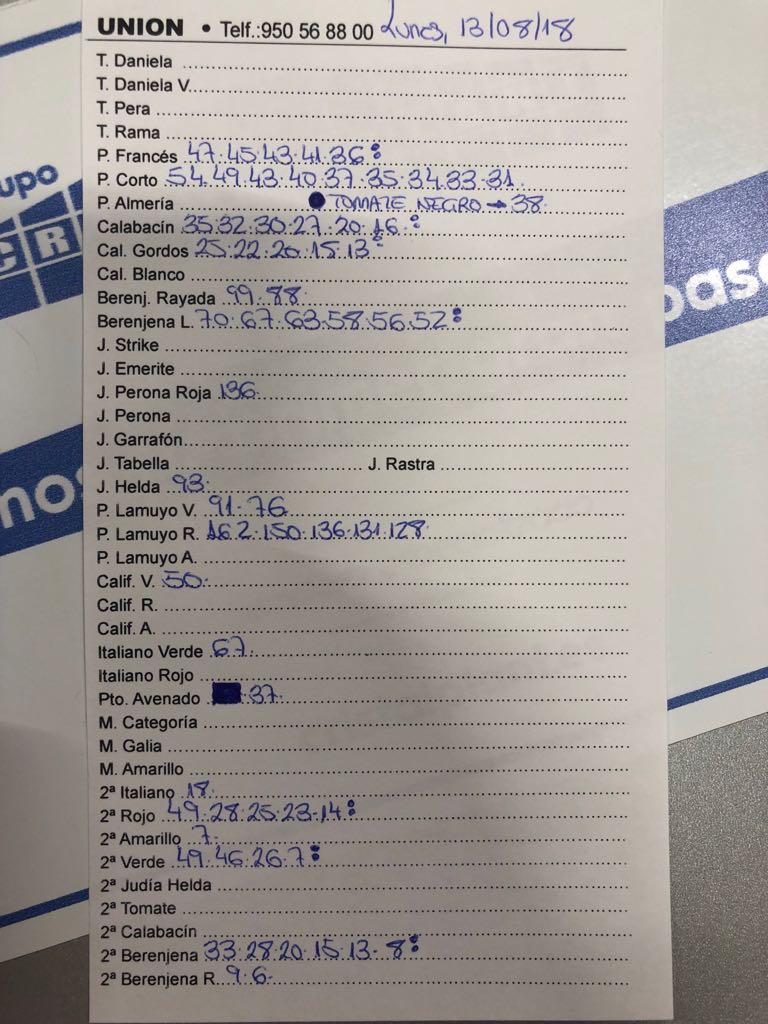 UNION • Telf.:950 56 88 00 Lunes, 13/08/18
T. Daniela
T. Daniela V.
T. Pera
T. Rama
P. Francés 47.45.43.41.36:
P. Corto 54.49.43.40.37.35.34.33.31.
P. Almería ● TOMATE NEGRO → 38.
Calabacín 35.32.30.27.20.16.:
Cal. Gordos 25.22.20.15.13:
Cal. Blanco
Berenj. Rayada 99.88.
Berenjena L. 70.67.63.58.56.52:
J. Strike
J. Emerite
J. Perona Roja 136.
J. Perona
J. Garrafón
J. Tabella J. Rastra
J. Helda 93.
P. Lamuyo V. 91.76
P. Lamuyo R. 162.150.136.131.128
P. Lamuyo A.
Calif. V. 50.
Calif. R.
Calif. A.
Italiano Verde 67.
Italiano Rojo
Pto. Avenado 37.
M. Categoría
M. Galia
M. Amarillo
2ª Italiano 18.
2ª Rojo 49.28.25.23.14:
2ª Amarillo 7.
2ª Verde 49.46.26.7:
2ª Judía Helda
2ª Tomate
2ª Calabacín
2ª Berenjena 33.28.20.15.13.8:
2ª Berenjena R. 9.6.
upo
CR
nos
base